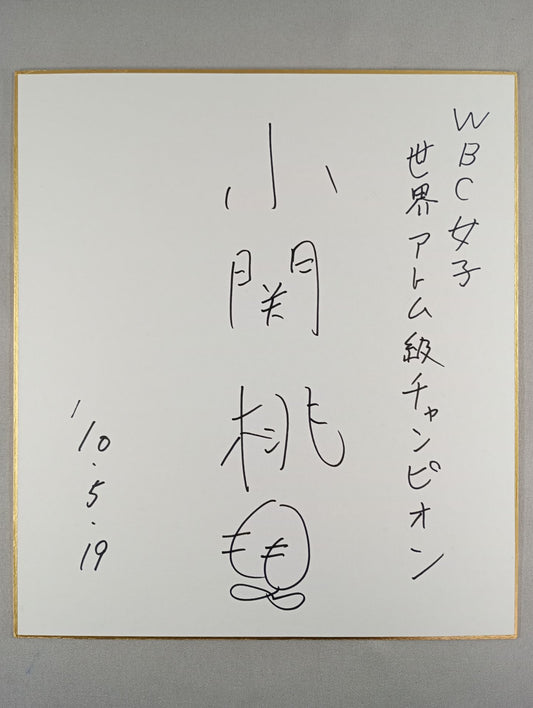 WBC女子
世界アトム級チャンピオン
小関桃
もも
'10.5.19